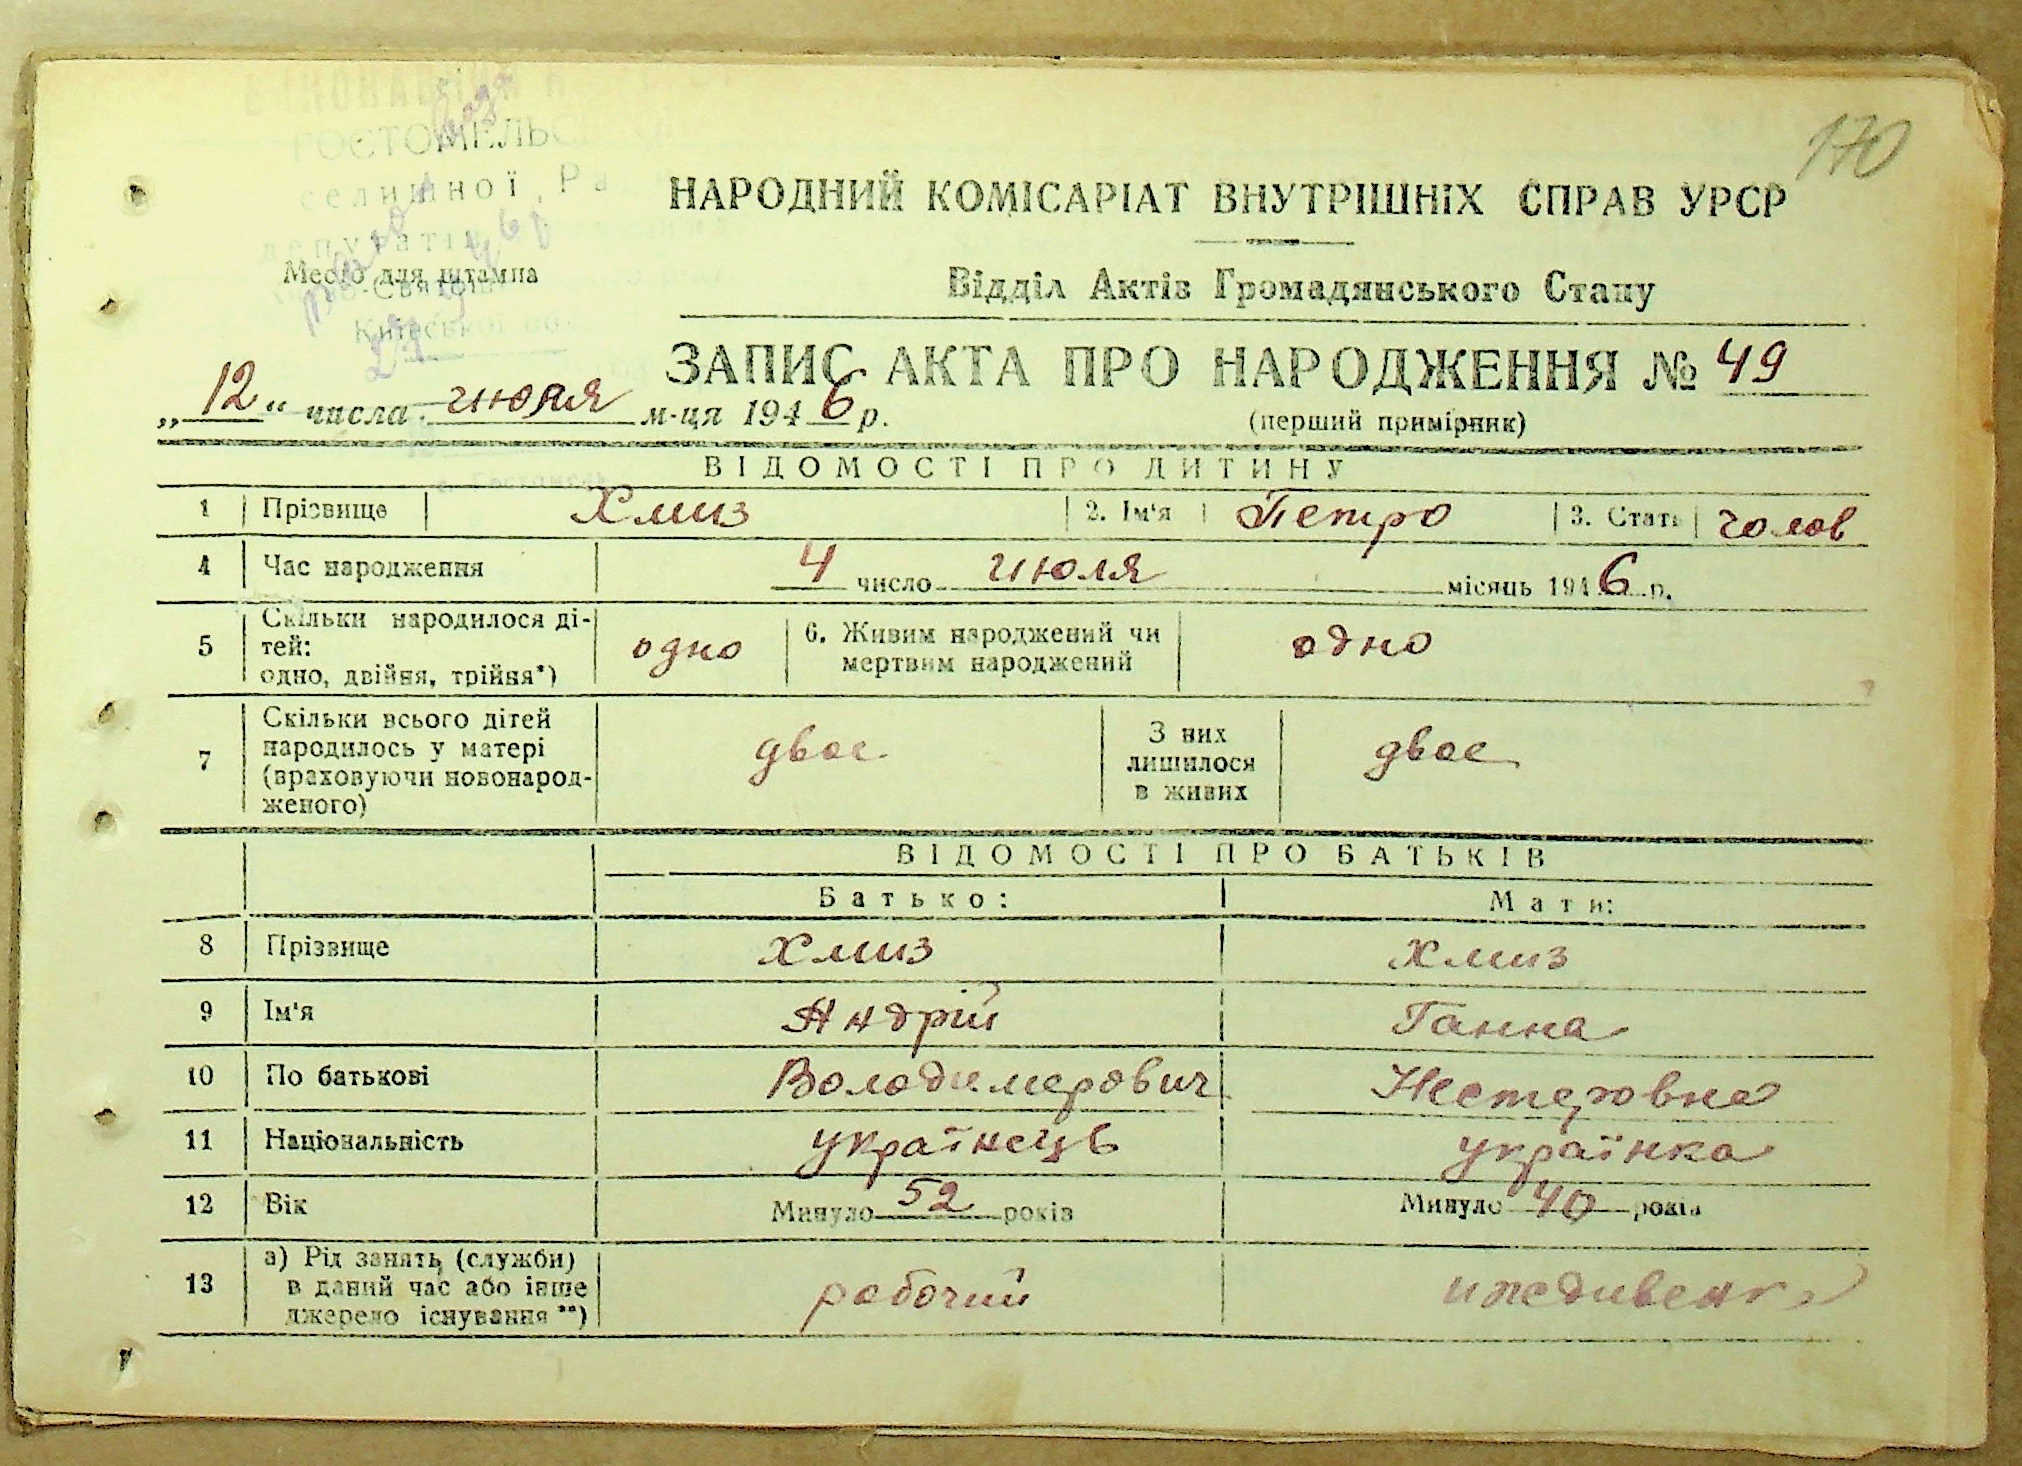 170
ГОСТОМЕЛЬС
селищної Ра
депутатів
Место для штампа
Святош
Київської
НАРОДНИЙ КОМІСАРІАТ ВНУТРІШНІХ СПРАВ УРСР
Відділ Актів Громадянського Стану
ЗАПИС АКТА ПРО НАРОДЖЕННЯ № 49
„12“ числа июля м-ця 1946 р.
(перший примірник)
ВІДОМОСТІ ПРО ДИТИНУ
1 Прізвище Хмиз 2. Ім'я Петро 3. Стать чолов
4 Час народження 4 число июля місяць 1946 р.
5 Скільки народилося ді-
тей:
одно, двійня, трійня*) одно 6. Живим народжений чи
мертвим народжений одно
7 Скільки всього дітей
народилось у матері
(враховуючи новонарод-
женого) двое З них
лишилося
в живих двое
ВІДОМОСТІ ПРО БАТЬКІВ
Батько: Мати:
8 Прізвище Хмиз Хмиз
9 Ім'я Андрій Ганна
10 По батькові Володимерович Нестеровна
11 Національність українець українка
12 Вік Минуло 52 років Минуло 40 років
13 а) Рід занять (служби)
в даний час або інше
джерело існування **) рабочий иждивенка